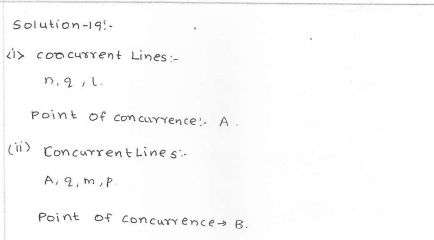 Solution-19:-
(i) concurrent Lines:-
n, q, l.
Point of concurrence:- A.
(ii) Concurrent Lines:-
A, q, m, p.
Point of concurrence → B.